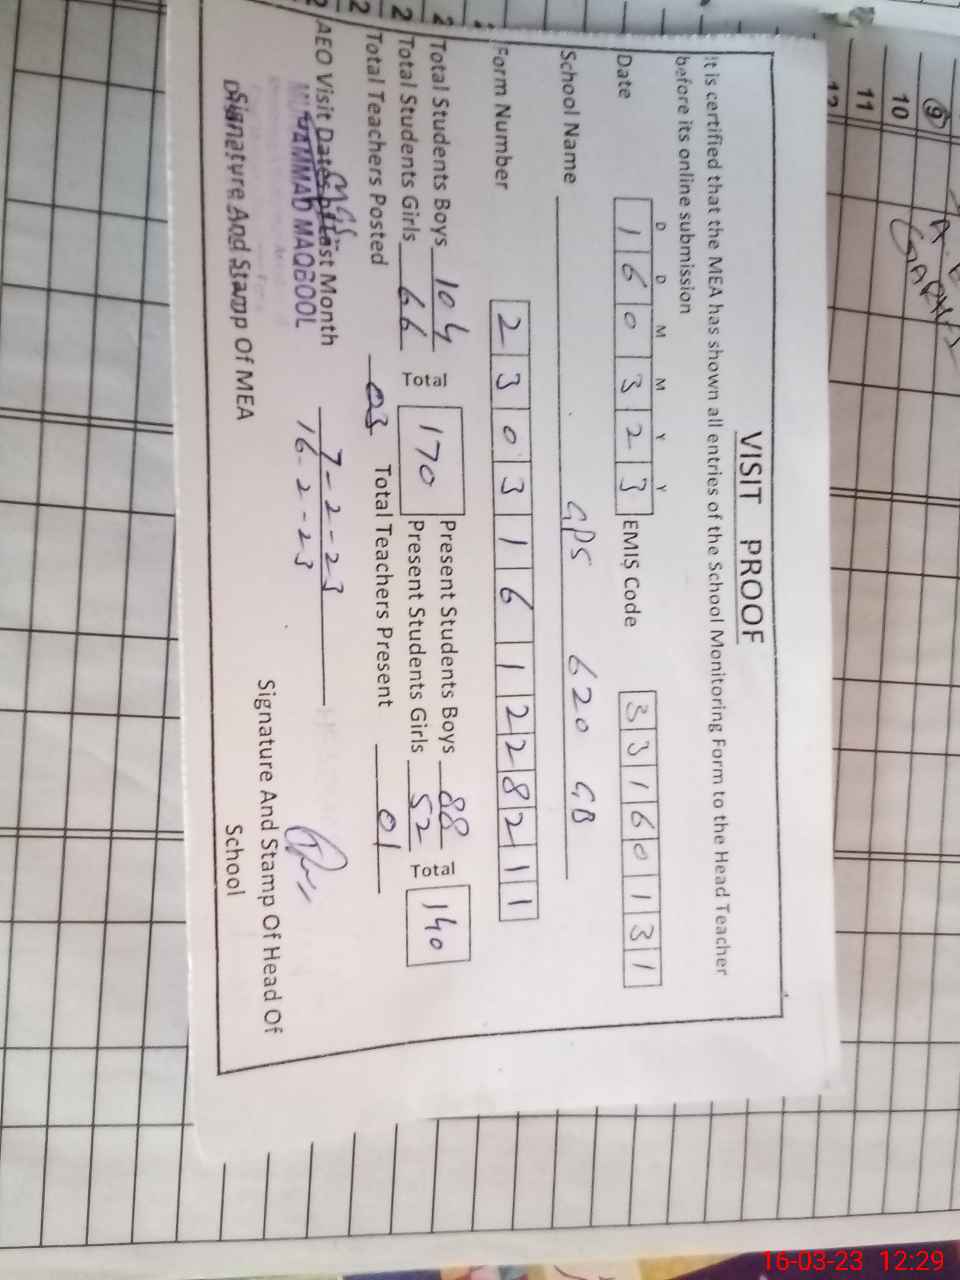 VISIT PROOF
It is certified that the MEA has shown all entries of the School Monitoring Form to the Head Teacher
before its online submission
D D M M Y Y
Date 1 6 0 3 2 3 EMIS Code 3 3 1 6 0 1 3 1
School Name GPS 620 GB
Form Number 2 3 0 3 1 6 1 2 2 8 2 1 1
Total Students Boys 104 Total 170 Present Students Boys 88 Total 140
Total Students Girls 66 Present Students Girls 52
Total Teachers Posted 03 Total Teachers Present 01
AEO Visit Dates of Last Month 7-2-23
16-2-23
MUHAMMAD MAQBOOL
Signature And Stamp Of MEA
Signature And Stamp Of Head Of
School
9
10
11
12
16-03-23 12:29